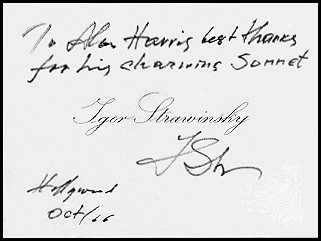 To Alan Harris best thanks
for his charming Sonnet
Igor Strawinsky
I Str
Hollywood
Oct/66